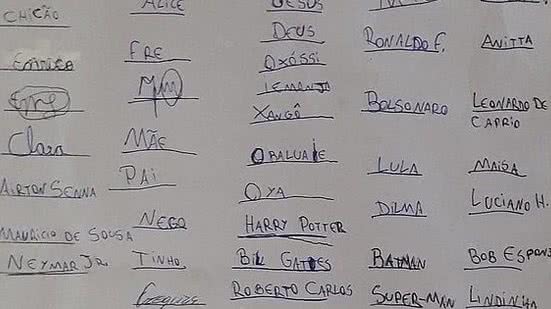 CHICÃO
ALICE
JESUS
DEUS
RONALDO F.
ANITTA
FRE
OXÓSSI
IEMANJÁ
XANGÔ
BOLSONARO
LEONARDO DE
CAPRIO
Clara
MÃE
OBALUAIE
LULA
MAISA
AIRTON SENNA
PAI
OYA
DILMA
LUCIANO H.
MAURICIO DE SOUSA
NEGO
HARRY POTTER
NEYMAR JR.
TINHO
BILL GATES
BATMAN
BOB ESPONS
ROBERTO CARLOS
SUPER-MAN
LINDINHA